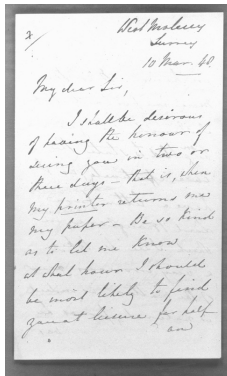 2/
West Molesey
Surrey
10 Mar. 48.
My dear Sir,
I shall be desirous
of having the honour of
seeing you in two or
three days – that is, when
my printer returns me
my paper – Be so kind
as to let me know
at what hour I should
be most likely to find
you at leisure for half
an